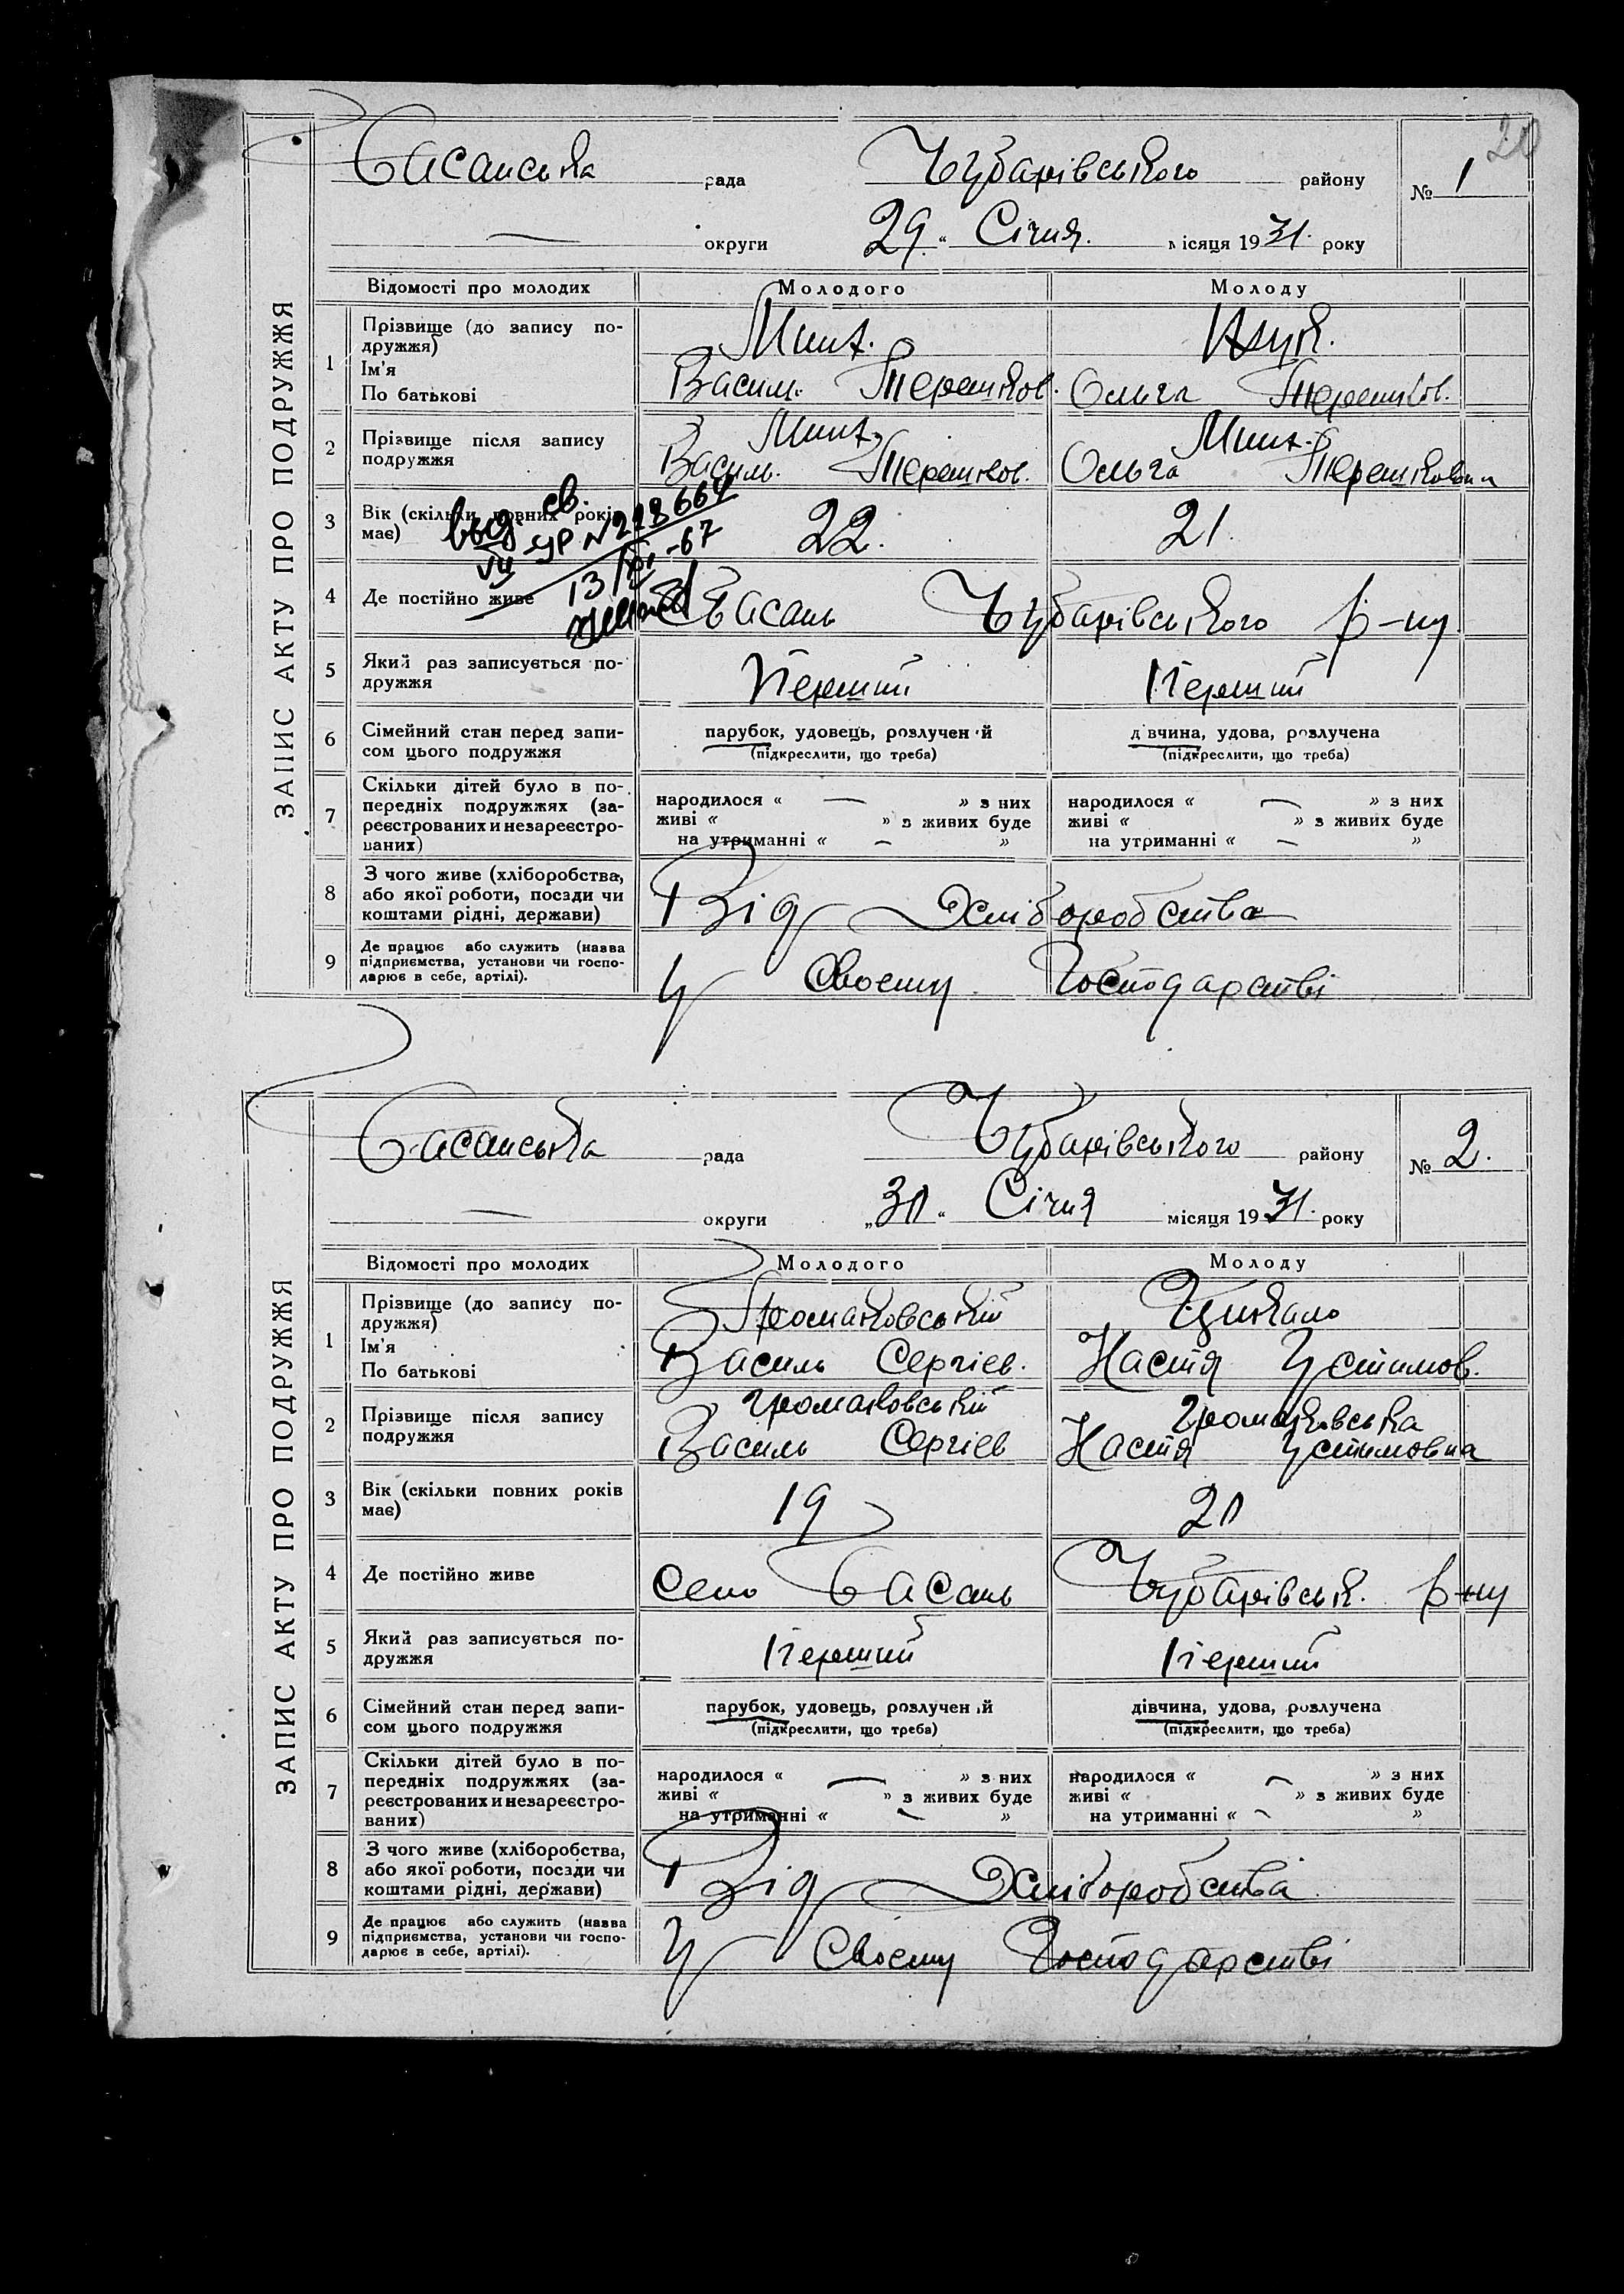 20
Басанська рада Чубарівського району № 1
округи 29 " Січня. місяця 1931. року
ЗАПИС АКТУ ПРО ПОДРУЖЖЯ
Відомості про молодих Молодого Молоду
1 Прізвище (до запису по-
дружжя)
Ім'я
По батькові
Василь Терешков. Ольга Терешков.
2 Прізвище після запису
подружжя
Василь. Терешков. Ольга Терешковна
3 Вік (скільки повних років
має)
22. 21.
выд. св.
VII-УР № 228664
13/XI-67
4 Де постійно живе С Басань Чубарівського р-ну
5 Який раз записується по-
дружжя
Перший Перший
6 Сімейний стан перед запи-
сом цього подружжя
парубок, удовець, розлучений дівчина, удова, розлучена
(підкреслити, що треба) (підкреслити, що треба)
7 Скільки дітей було в по-
передніх подружжях (за-
реєстрованих и незареєстро-
ваних)
народилося « — » з них народилося « — » з них
живі « » з живих буде живі « » з живих буде
на утриманні « — » на утриманні « — »
8 З чого живе (хліборобства,
або якої роботи, посади чи
коштами рідні, держави)
Від Хліборобства
9 Де працює або служить (назва
підприємства, установи чи госпо-
дарює в себе, артілі).
У Своєму Господарстві
Басанська рада Чубарівського району № 2.
округи „30“ Січня місяця 1931. року
ЗАПИС АКТУ ПРО ПОДРУЖЖЯ
Відомості про молодих Молодого Молоду
1 Прізвище (до запису по-
дружжя)
Ім'я
По батькові
Громаковській Цикало
Василь Сергіев. Настя Устимов.
2 Прізвище після запису
подружжя
Громаковській Громаковська
Василь Сергіев Настя Устимовна
3 Вік (скільки повних років
має)
19 20
4 Де постійно живе Село Басань Чубарівськ. р-ну
5 Який раз записується по-
дружжя
Перший Перший
6 Сімейний стан перед запи-
сом цього подружжя
парубок, удовець, розлучений дівчина, удова, розлучена
(підкреслити, що треба) (підкреслити, що треба)
7 Скільки дітей було в по-
передніх подружжях (за-
реєстрованих и незареєстро-
ваних)
народилося « — » з них народилося « — » з них
живі « » з живих буде живі « » з живих буде
на утриманні « — » на утриманні « — »
8 З чого живе (хліборобства,
або якої роботи, посади чи
коштами рідні, держави)
Від Хліборобства
9 Де працює або служить (назва
підприємства, установи чи госпо-
дарює в себе, артілі).
У Своєму Господарстві